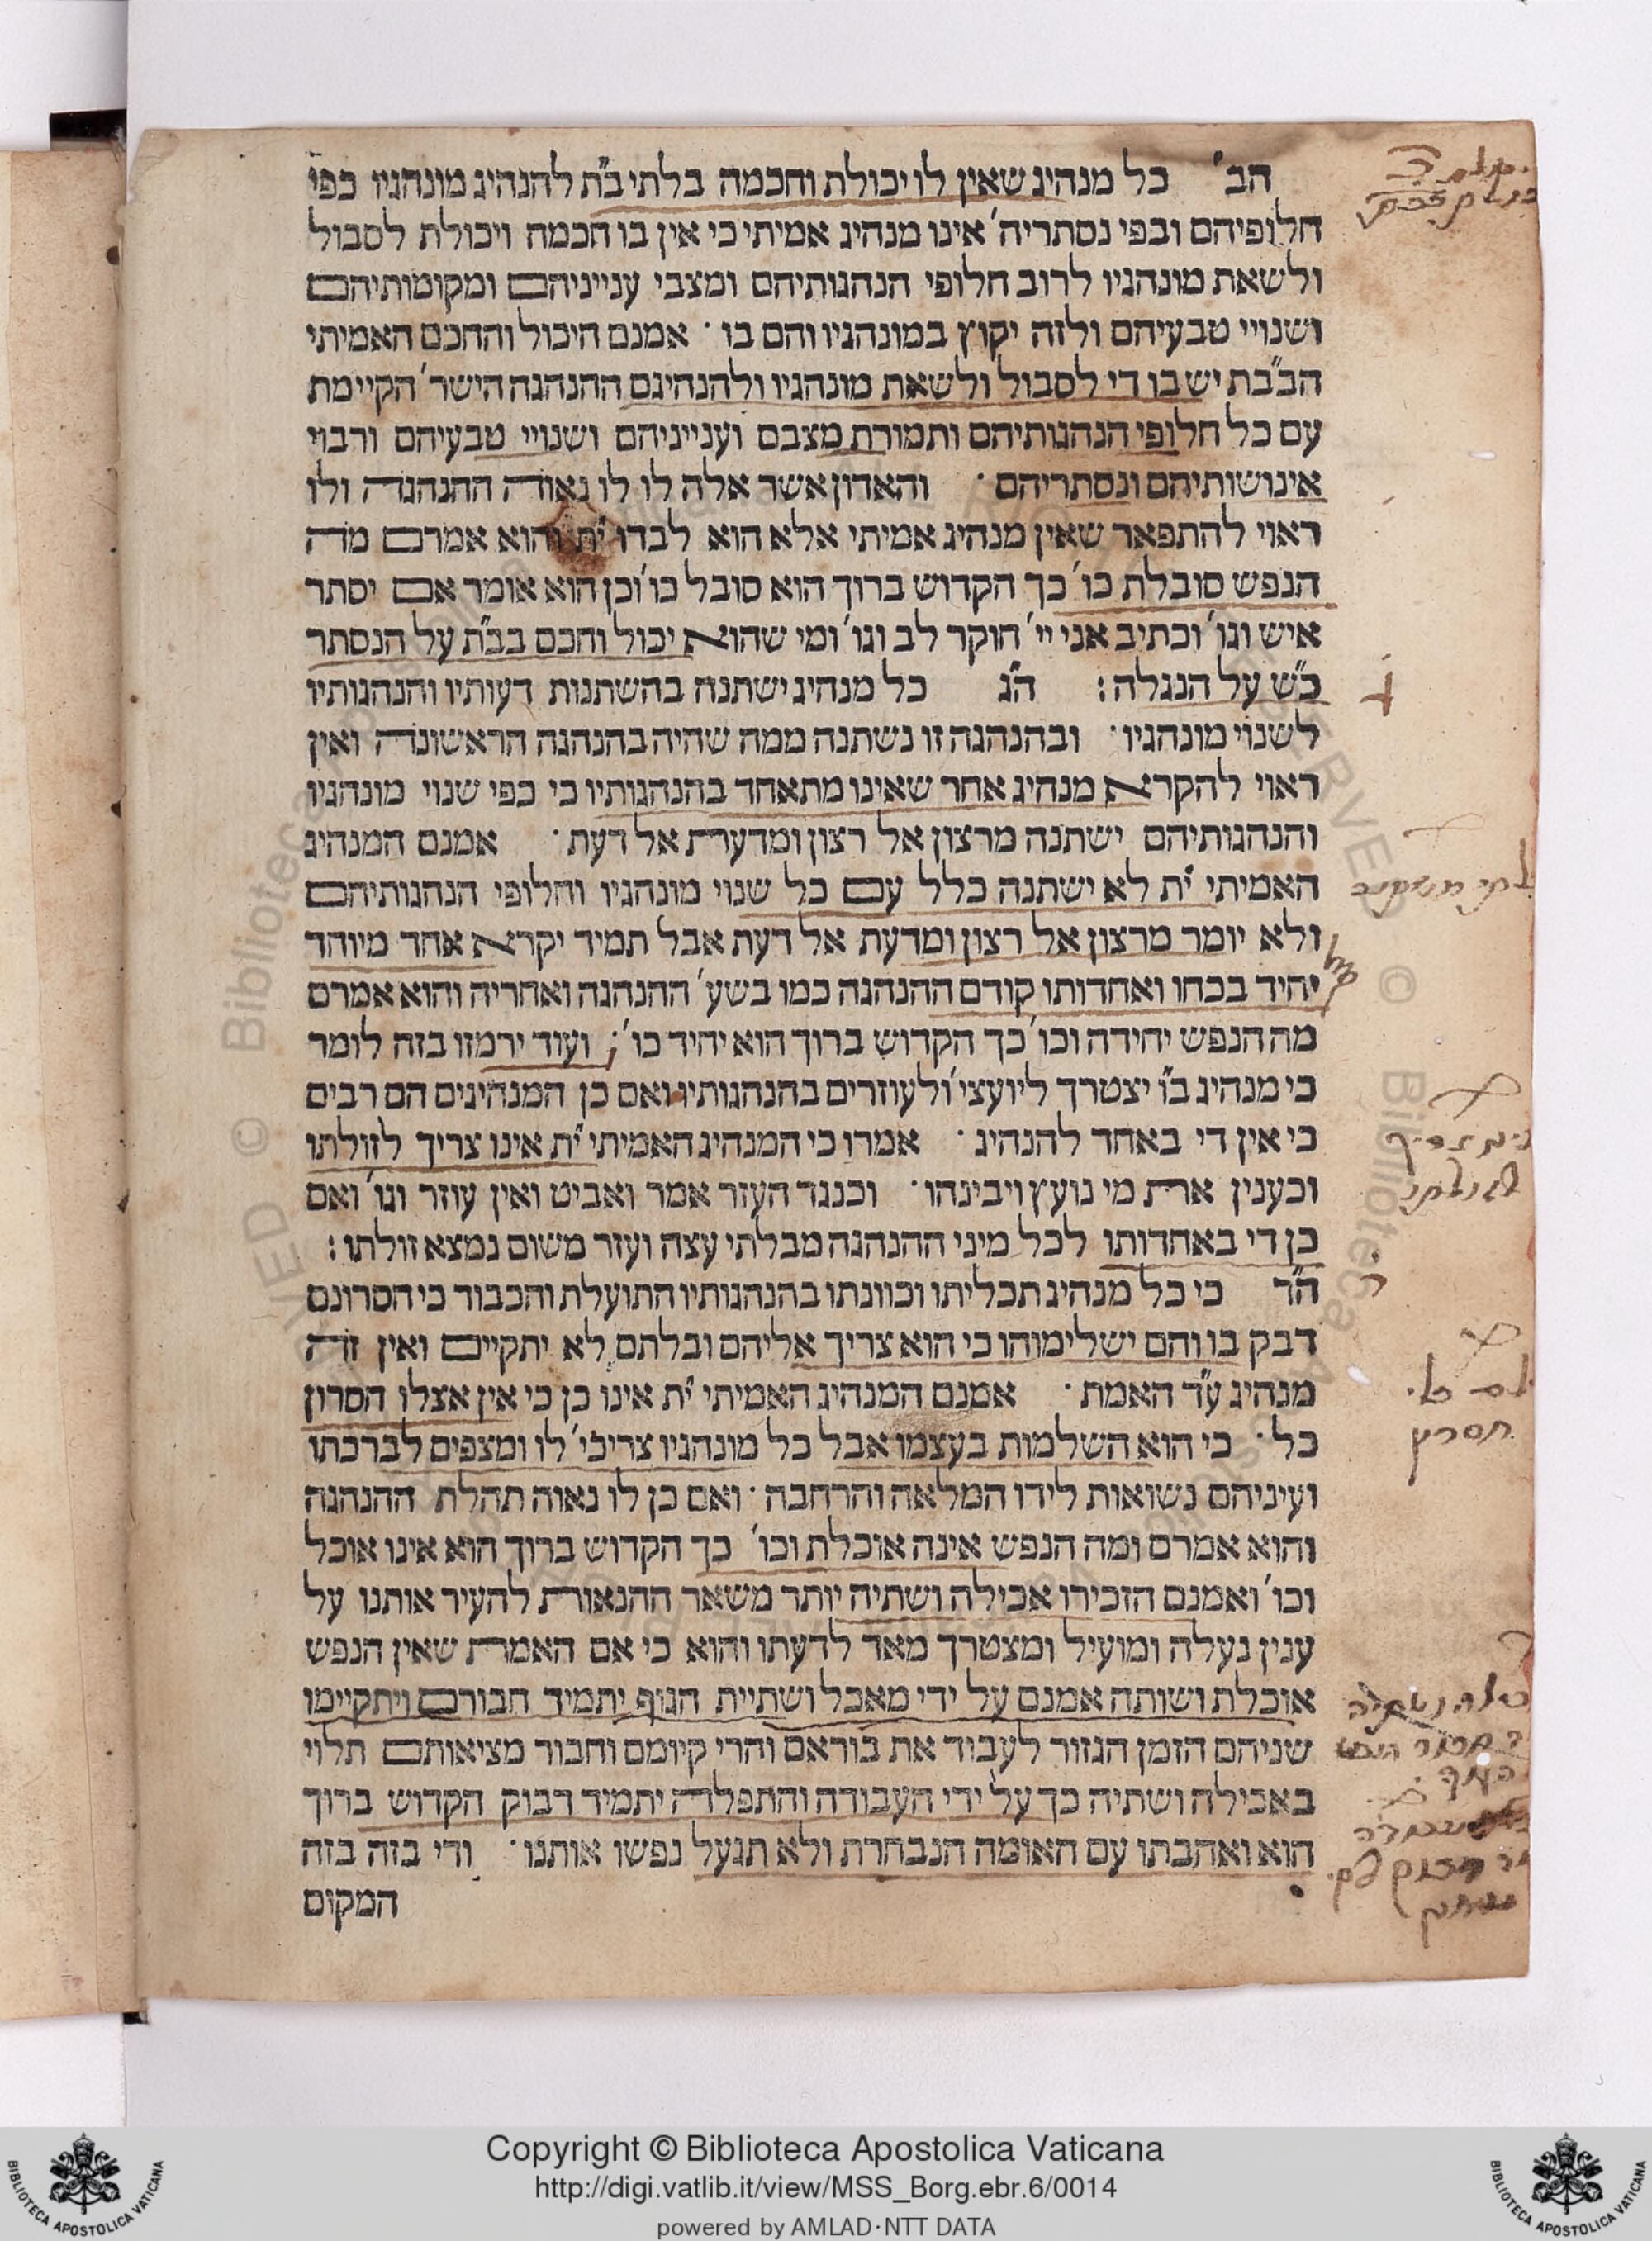 הב' כל מנהיג שאין לו יכולת וחכמה בלתי ב"ת להנהיג מונהגיו כפי
חלופיהם ובפי נסתריה' אינו מנהיג אמיתי כי אין בו חכמה ויכולת לסבול
ולשאת מונהגיו לרוב חלופי הנהגותיהם ומצבי ענייניהם ומקומותיהם
ושנויי טבעיהם ולזה יקוץ במונהגיו והם בו · אמנם היכול והחכם האמיתי
הב"בת יש בו די לסבול ולשאת מונהגיו ולהנהיגם ההנהגה הישר' הקיימת
עם כל חלופי הנהגותיהם ותמורת מצבם וענייניהם ושנויי טבעיהם ורבוי
אינושותיהם ונסתריהם · והאדון אשר אלה לו לו נאוה ההנהגה ולו
ראוי להתפאר שאין מנהיג אמיתי אלא הוא לבדו ית' והוא אמרם מה
הנפש סובלת כו' כך הקדוש ברוך הוא סובל כו' וכן הוא אומר אם יסתר
איש וגו' וכתיב אני יי' חוקר לב וגו' ומי שהוא יכול וחכם בב"ת על הנסתר
כ"ש על הנגלה : ה"ג כל מנהיג ישתנה בהשתנות דעותיו והנהגותיו
לשנוי מונהגיו · ובהנהגה זו נשתנה ממה שהיה בהנהגה הראשונה ואין
ראוי להקרא מנהיג אחר שאינו מתאחד בהנהגותיו כי כפי שנוי מונהגיו
והנהגותיהם ישתנה מרצון אל רצון ומדעת אל דעת · אמנם המנהיג
האמיתי ית' לא ישתנה כלל עם כל שנוי מונהגיו וחלופי הנהגותיהם
ולא יומר מרצון אל רצון ומדעת אל דעת אבל תמיד יקרא אחד מיוחד
יחיד בכחו ואחדותו קודם ההנהגה כמו בשע' ההנהגה ואחריה והוא אמרם
מה הנפש יחידה וכו' כך הקדוש ברוך הוא יחיד כו' ; ועוד ירמזו בזה לומר
כי מנהיג ב"ו יצטרך ליועצי' ולעוזרים בהנהגותיו ואם כן המנהיגים הם רבים
כי אין די באחד להנהיג · אמרו כי המנהיג האמיתי ית' אינו צריך לזולתו
וכענין את מי נועץ ויבינהו · וכנגד העזר אמר ואביט ואין עוזר וגו' ואם
כן די באחדותו לכל מיני ההנהגה מבלתי עצה ועזר משום נמצא זולתו :
ה"ד כי כל מנהיג תכליתו וכוונתו בהנהגותיו התועלת והכבוד כי חסרונם
דבק בו והם ישלימוהו כי הוא צריך אליהם ובלתם לא יתקיים ואין זה
מנהיג ע"ד האמת · אמנם המנהיג האמיתי ית' אינו כן כי אין אצלו חסרון
כל · כי הוא השלמות בעצמו אבל כל מונהגיו צריכי' לו ומצפים לברכתו
ועיניהם נשואות לידו המלאה והרחבה · ואם כן לו נאוה תהלת ההנהגה
והוא אמרם ומה הנפש אינה אוכלת וכו' כך הקדוש ברוך הוא אינו אוכל
וכו' ואמנם הזכירו אכילה ושתיה יותר משאר ההנאות להעיר אותנו על
ענין נעלה ומועיל ומצטרך מאד לדעתו והוא כי אם האמת שאין הנפש
אוכלת ושותה אמנם על ידי מאכל ושתיית הגוף יתמיד חבורם ויתקיימו
שניהם הזמן הגזור לעבוד את בוראם והרי קיומם וחבור מציאותם תלוי
באכילה ושתיה כך על ידי העבודה והתפלה יתמיד דבוק הקדוש ברוך
הוא ואהבתו עם האומה הנבחרת ולא תגעל נפשו אותנו · ודי בזה בזה
המקום
Copyright © Biblioteca Apostolica Vaticana
http://digi.vatlib.it/view/MSS_Borg.ebr.6/0014
powered by AMLAD·NTT DATA
BIBLIOTECA APOSTOLICA VATICANA
BIBLIOTECA APOSTOLICA VATICANA